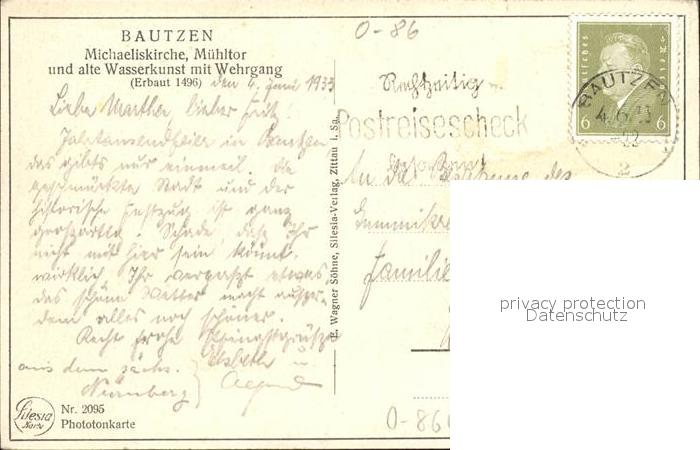 BAUTZEN
Michaeliskirche, Mühltor
und alte Wasserkunst mit Wehrgang
(Erbaut 1496)
den 4. Juni 1933
Liebe Martha, lieber Fritz!
Jahrtausendfeier in Bautzen
das gibts nur einmal. Die
geschmückte Stadt und der
historische Festzug ist ganz
großartig. Schade, daß Ihr
nicht mit hier sein könnt,
wirklich Ihr verpaßt etwas
das schöne Wetter macht
dem alles noch schöner.
Recht frohe Pfingstgrüße
aus dem sächs.
Nürnberg
Elsbeth u.
Silesia
Nr. 2095
Phototonkarte
E. Wagner Söhne, Silesia-Verlag, Zittau i. Sa.
O-86
Rechtzeitig
Postreisescheck
BAUTZEN
4.6.33
2
6 6
An die
Familie
privacy protection
Datenschutz
O-860